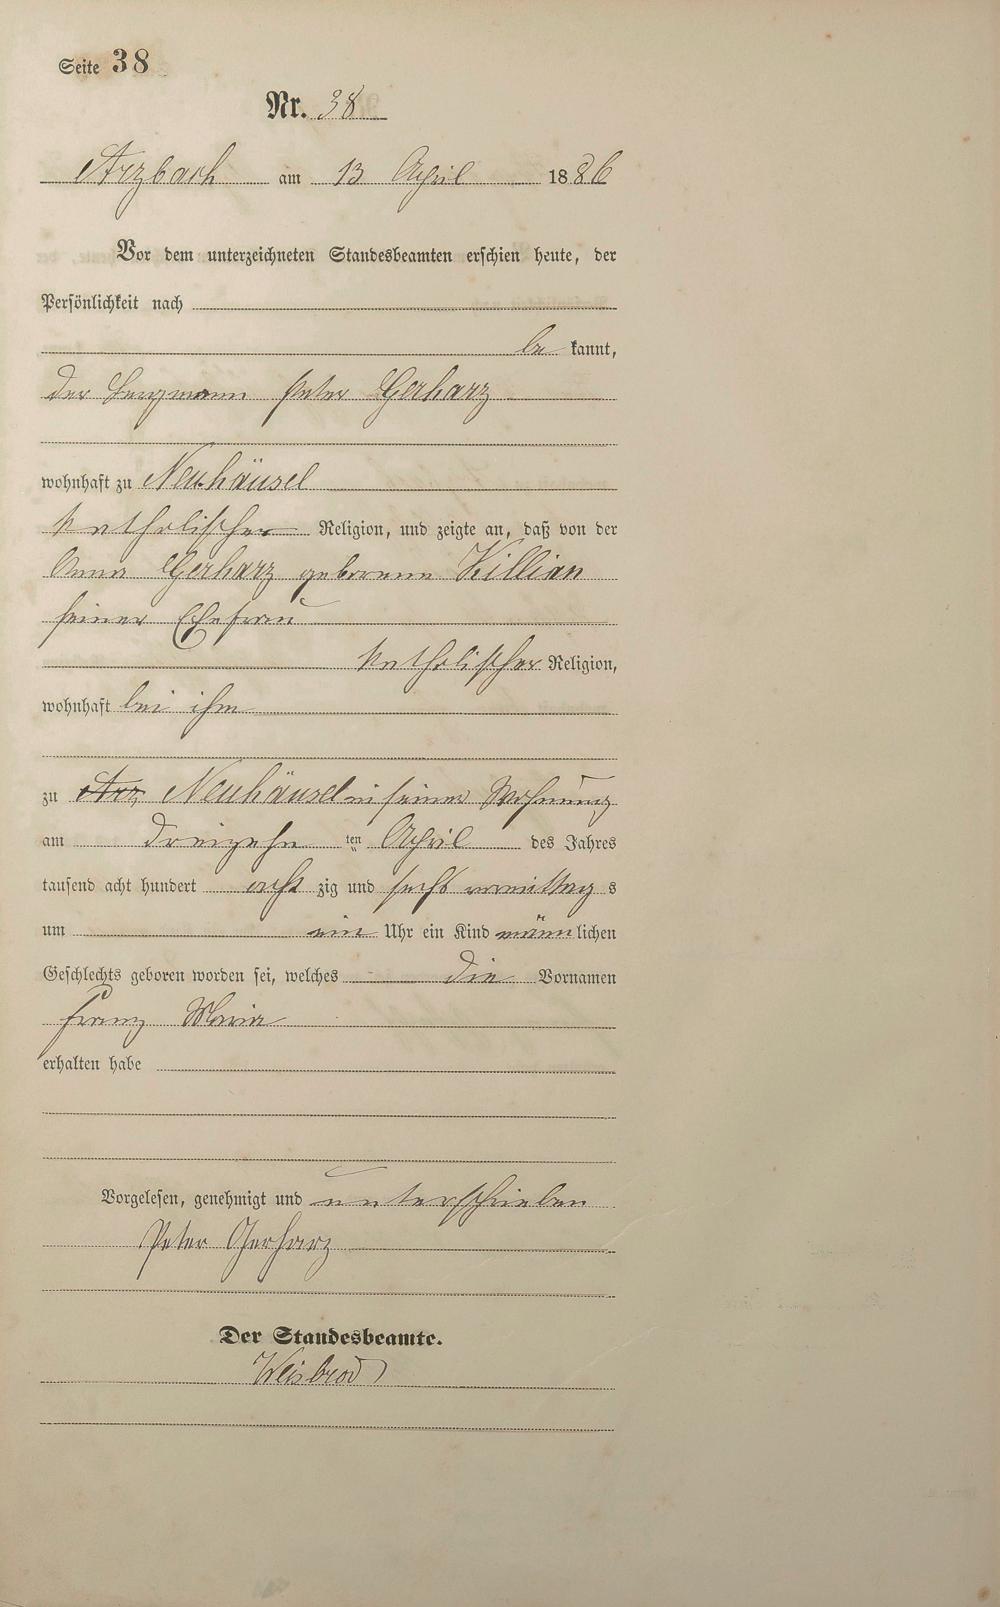 Seite 38
Nr. 38
Arzbach am 13 April 1886
Vor dem unterzeichneten Standesbeamten erschien heute, der
Persönlichkeit nach
be kannt,
der Bergmann Peter Gerharz
wohnhaft zu Neuhäusel
katholischer Religion, und zeigte an, daß von der
Anna Gerharz geborene Killian
seiner Ehefrau
katholischer Religion,
wohnhaft bei ihm
zu Arz Neuhäusel in seiner Wohnung
am dreizehn ten April des Jahres
tausend acht hundert acht zig und sechs vormittag s
um ein Uhr ein Kind männlichen
Geschlechts geboren worden sei, welches die Vornamen
Franz Maria
erhalten habe
Vorgelesen, genehmigt und unterschrieben
Peter Gerharz
Der Standesbeamte.
Weisbrod